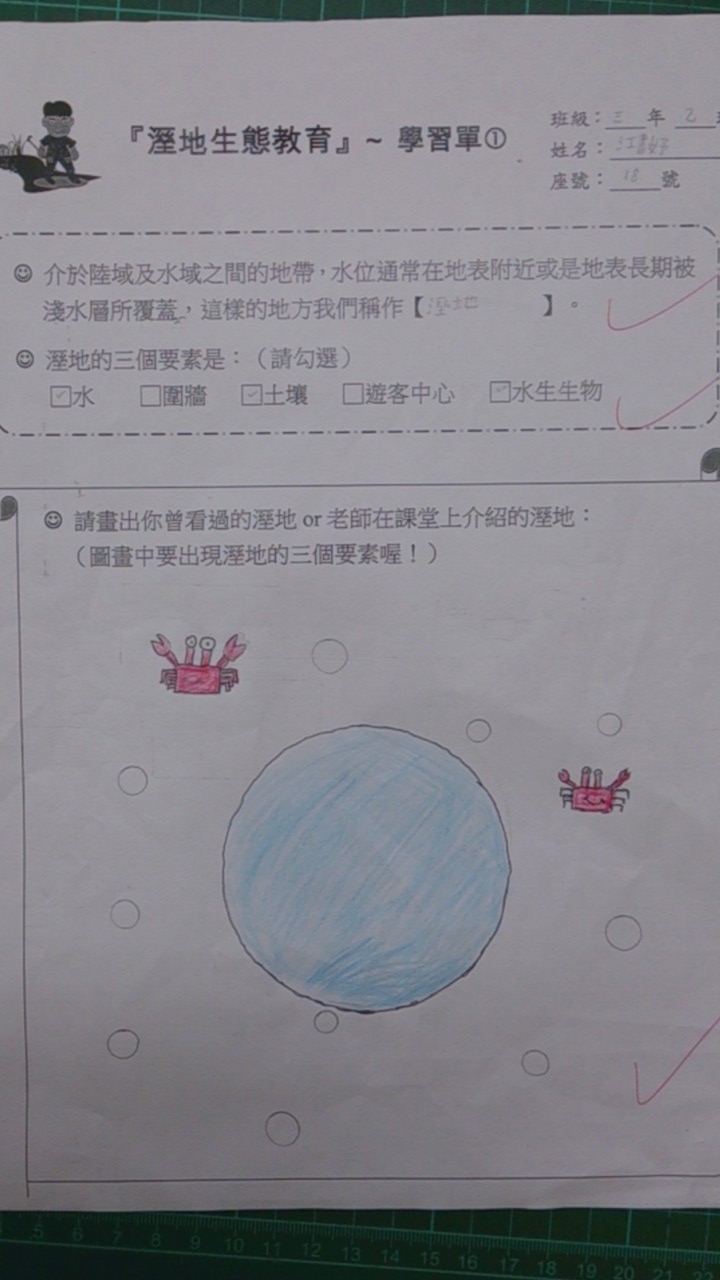 『溼地生態教育』~ 學習單①
班級：三 年 乙
姓名：江書好
座號：18號
介於陸域及水域之間的地帶，水位通常在地表附近或是地表長期被
淺水層所覆蓋，這樣的地方我們稱作【溼地】。
溼地的三個要素是：（請勾選）
☑水 □圍牆 ☑土壤 □遊客中心 ☑水生生物
請畫出你曾看過的溼地 or 老師在課堂上介紹的溼地：
（圖畫中要出現溼地的三個要素喔！）
5 6 7 8 9 10 11 12 13 14 15 16 17 18 19 20 21 22